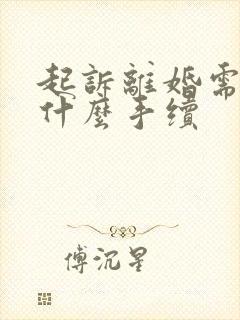 起訴離婚需
什麼手續
傅沉星